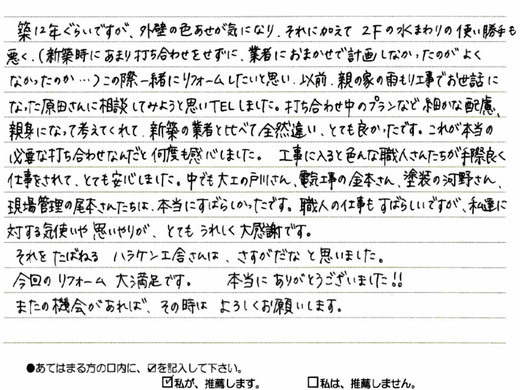 築12年ぐらいですが、外壁の色あせが気になり、それに加えて 2Fの水まわりの使い勝手も
悪く、(新築時にあまり打ち合わせをせずに、業者におまかせで計画しなかったのがよく
なかったのか…)この際一緒にリフォームしたいと思い、以前、親の家の雨もり工事でお世話に
なった原田さんに相談してみようと思いTELしました。打ち合わせ中のプランなど細かな配慮、
親身になって考えてくれて、新築の業者と比べて全然違い、とても良かったです。これが本当の
必要な打ち合わせなんだと何度も感心しました。 工事に入ると色んな職人さんたちが手際良く
仕事をされて、とても安心しました。中でも大工の戸川さん、電気工事の金本さん、塗装の河野さん、
現場管理の尾本さんたちは、本当にすばらしかったです。職人の仕事もすばらしいですが、私達に
対する気使いや思いやりが、とても うれしく大感謝です。
それをたばねる ハラケン工舎さんは、さすがだな と思いました。
今回のリフォーム 大満足です。 本当に ありがとうございました!!
またの機会があれば、その時は よろしくお願いします。
●あてはまる方の口内に、☑を記入して下さい。
☑私が、推薦します。 □私は、推薦しません。